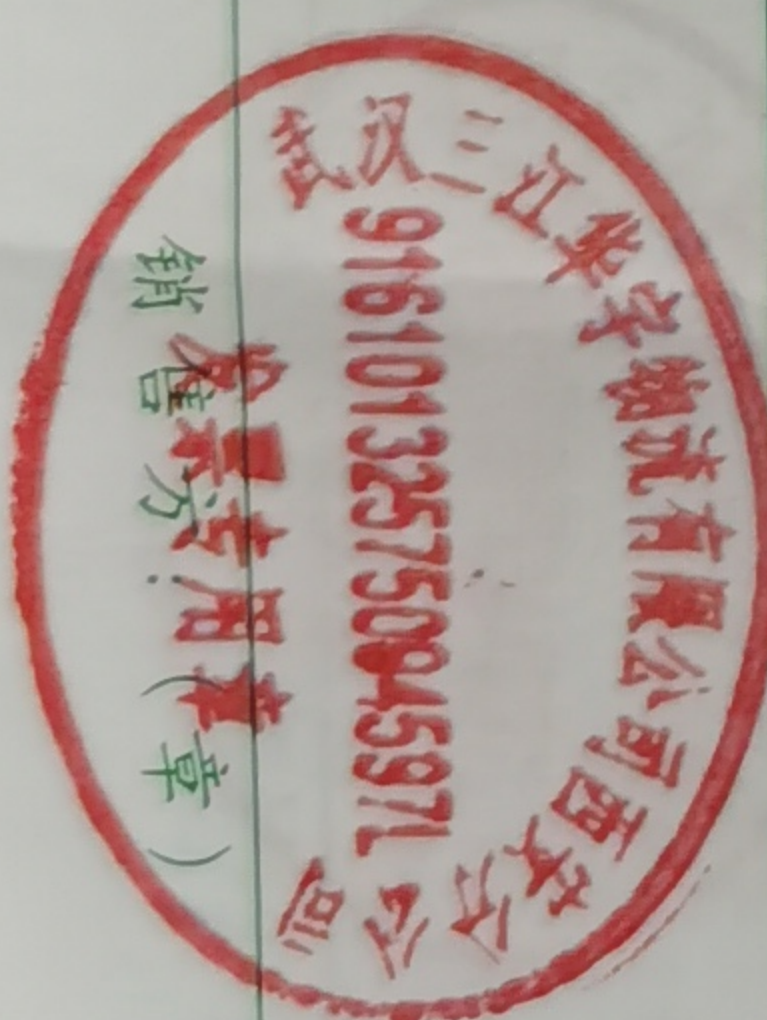 武汉三江华宇物流有限公司西安分公司
91610132575084597L
发票专用章
銷售方:(章)